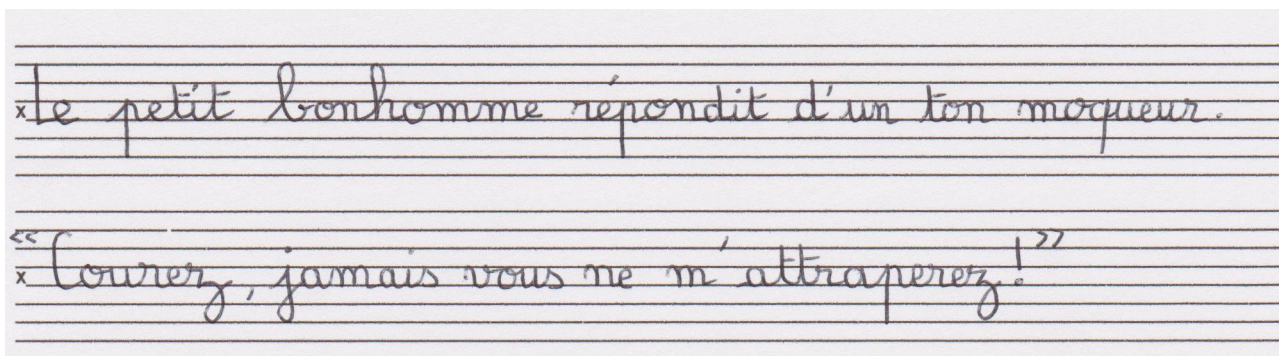 Le petit bonhomme répondit d'un ton moqueur.
« Courez, jamais vous ne m'attraperez! »